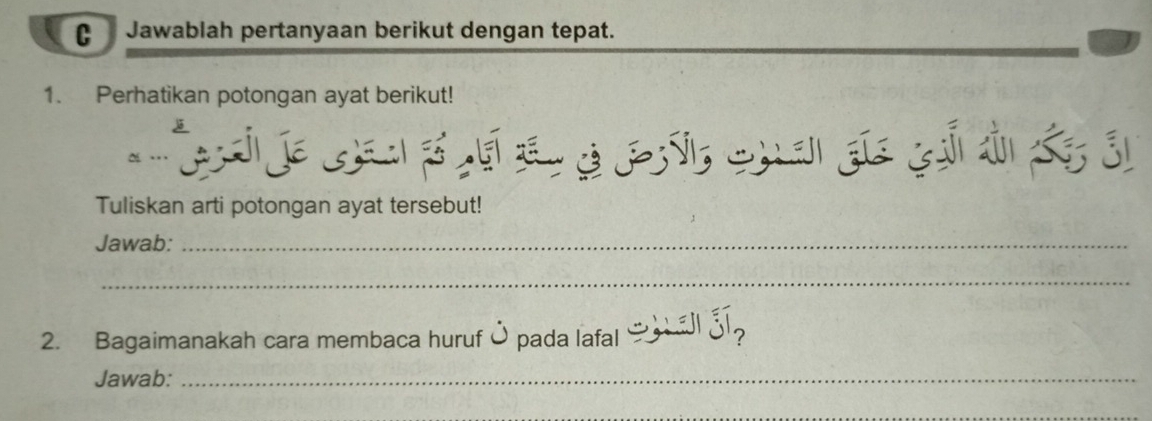 C Jawablah pertanyaan berikut dengan tepat.
1. Perhatikan potongan ayat berikut!
اِنَّ رَبَّكُمُ اللّٰهُ الَّذِيْ خَلَقَ السَّمٰوٰتِ وَالْاَرْضَ فِيْ سِتَّةِ اَيَّامٍ ثُمَّ اسْتَوٰى عَلَى الْعَرْشِۗ ...
Tuliskan arti potongan ayat tersebut!
Jawab:
2. Bagaimanakah cara membaca huruf ن pada lafal اَنَّ السَّمٰوٰتِ?
Jawab: